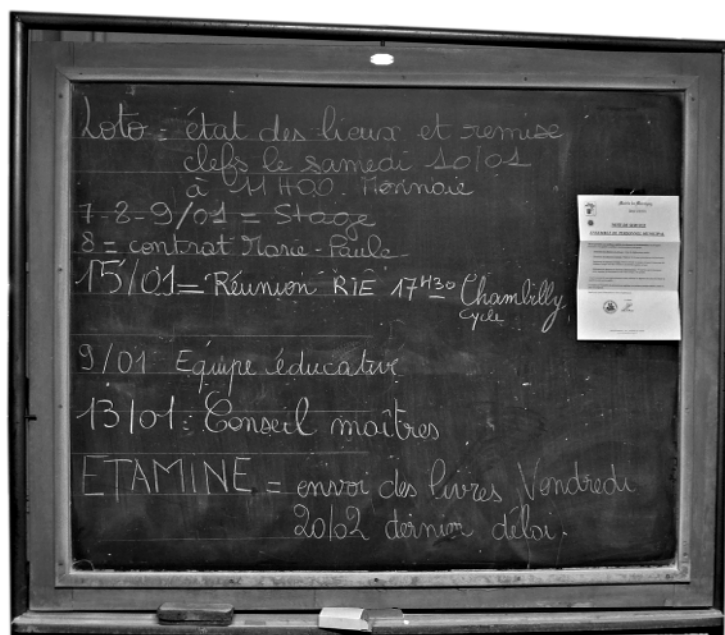 Loto = état des lieux et remise
clefs le samedi 10/01
à 11H00. Monnaie
7-8-9/01 = Stage
8 = contrat Marie-Paule
15/01 = Réunion RTE 17H30 Chambilly
cycle
9/01 Equipe éducative
13/01 : Conseil maîtres
ETAMINE = envoi des livres Vendredi
20/02 dernier délai.
NOTE DE SERVICE